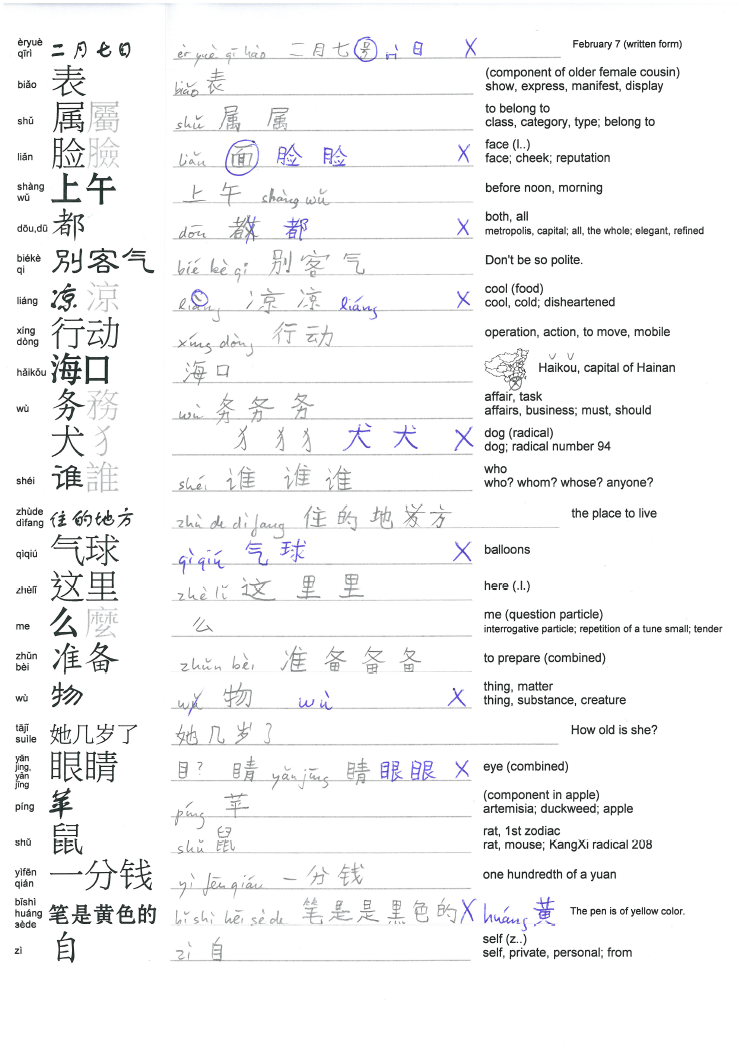 èryuè qīrì 二月七日 èr yuè qī hào 二月七号 日 X February 7 (written form)
biǎo 表 biǎo 表 (component of older female cousin)
show, express, manifest, display
shǔ 属屬 shǔ 属 属 to belong to
class, category, type; belong to
liǎn 脸臉 liǎn 面 脸 脸 X face (l..)
face; cheek; reputation
shàng wǔ 上午 上午 shàng wǔ before noon, morning
dōu,dū 都 dōu 都 X both, all
metropolis, capital; all, the whole; elegant, refined
biékè qi 别客气 bié kè qi 别客气 Don't be so polite.
liáng 凉涼 liang 凉 凉 liáng X cool (food)
cool, cold; disheartened
xíng dòng 行动 xíng dòng 行动 operation, action, to move, mobile
hǎikǒu 海口 海口 Haikou, capital of Hainan
wù 务務 wù 务 务 务 affair, task
affairs, business; must, should
犬犭 犭 犭 犭 犬 犬 X dog (radical)
dog; radical number 94
shéi 谁誰 shéi 谁 谁 谁 who
who? whom? whose? anyone?
zhùde dìfang 住的地方 zhù de dì fang 住的地方 the place to live
qìqiú 气球 qìqiú 气球 X balloons
zhèlǐ 这里 zhè lǐ 这里 里 here (.l.)
me 么麼 么 me (question particle)
interrogative particle; repetition of a tune small; tender
zhǔn bèi 准备 zhǔn bèi 准备 备 备 to prepare (combined)
wù 物 物 wù X thing, matter
thing, substance, creature
tājǐ suìle 她几岁了 她几岁了 How old is she?
yǎn jing, yǎn jīng 眼睛 目? 睛 yǎn jīng 睛 眼 眼 X eye (combined)
píng 苹 píng 苹 (component in apple)
artemisia; duckweed; apple
shǔ 鼠 shǔ 鼠 rat, 1st zodiac
rat, mouse; KangXi radical 208
yìfēn qián 一分钱 yì fēn qián 一分钱 one hundredth of a yuan
bǐshì huáng sède 笔是黄色的 bǐ shì hēi sè de 笔是是黑色的 X huáng 黄 The pen is of yellow color.
zì 自 zì 自 self (z..)
self, private, personal; from